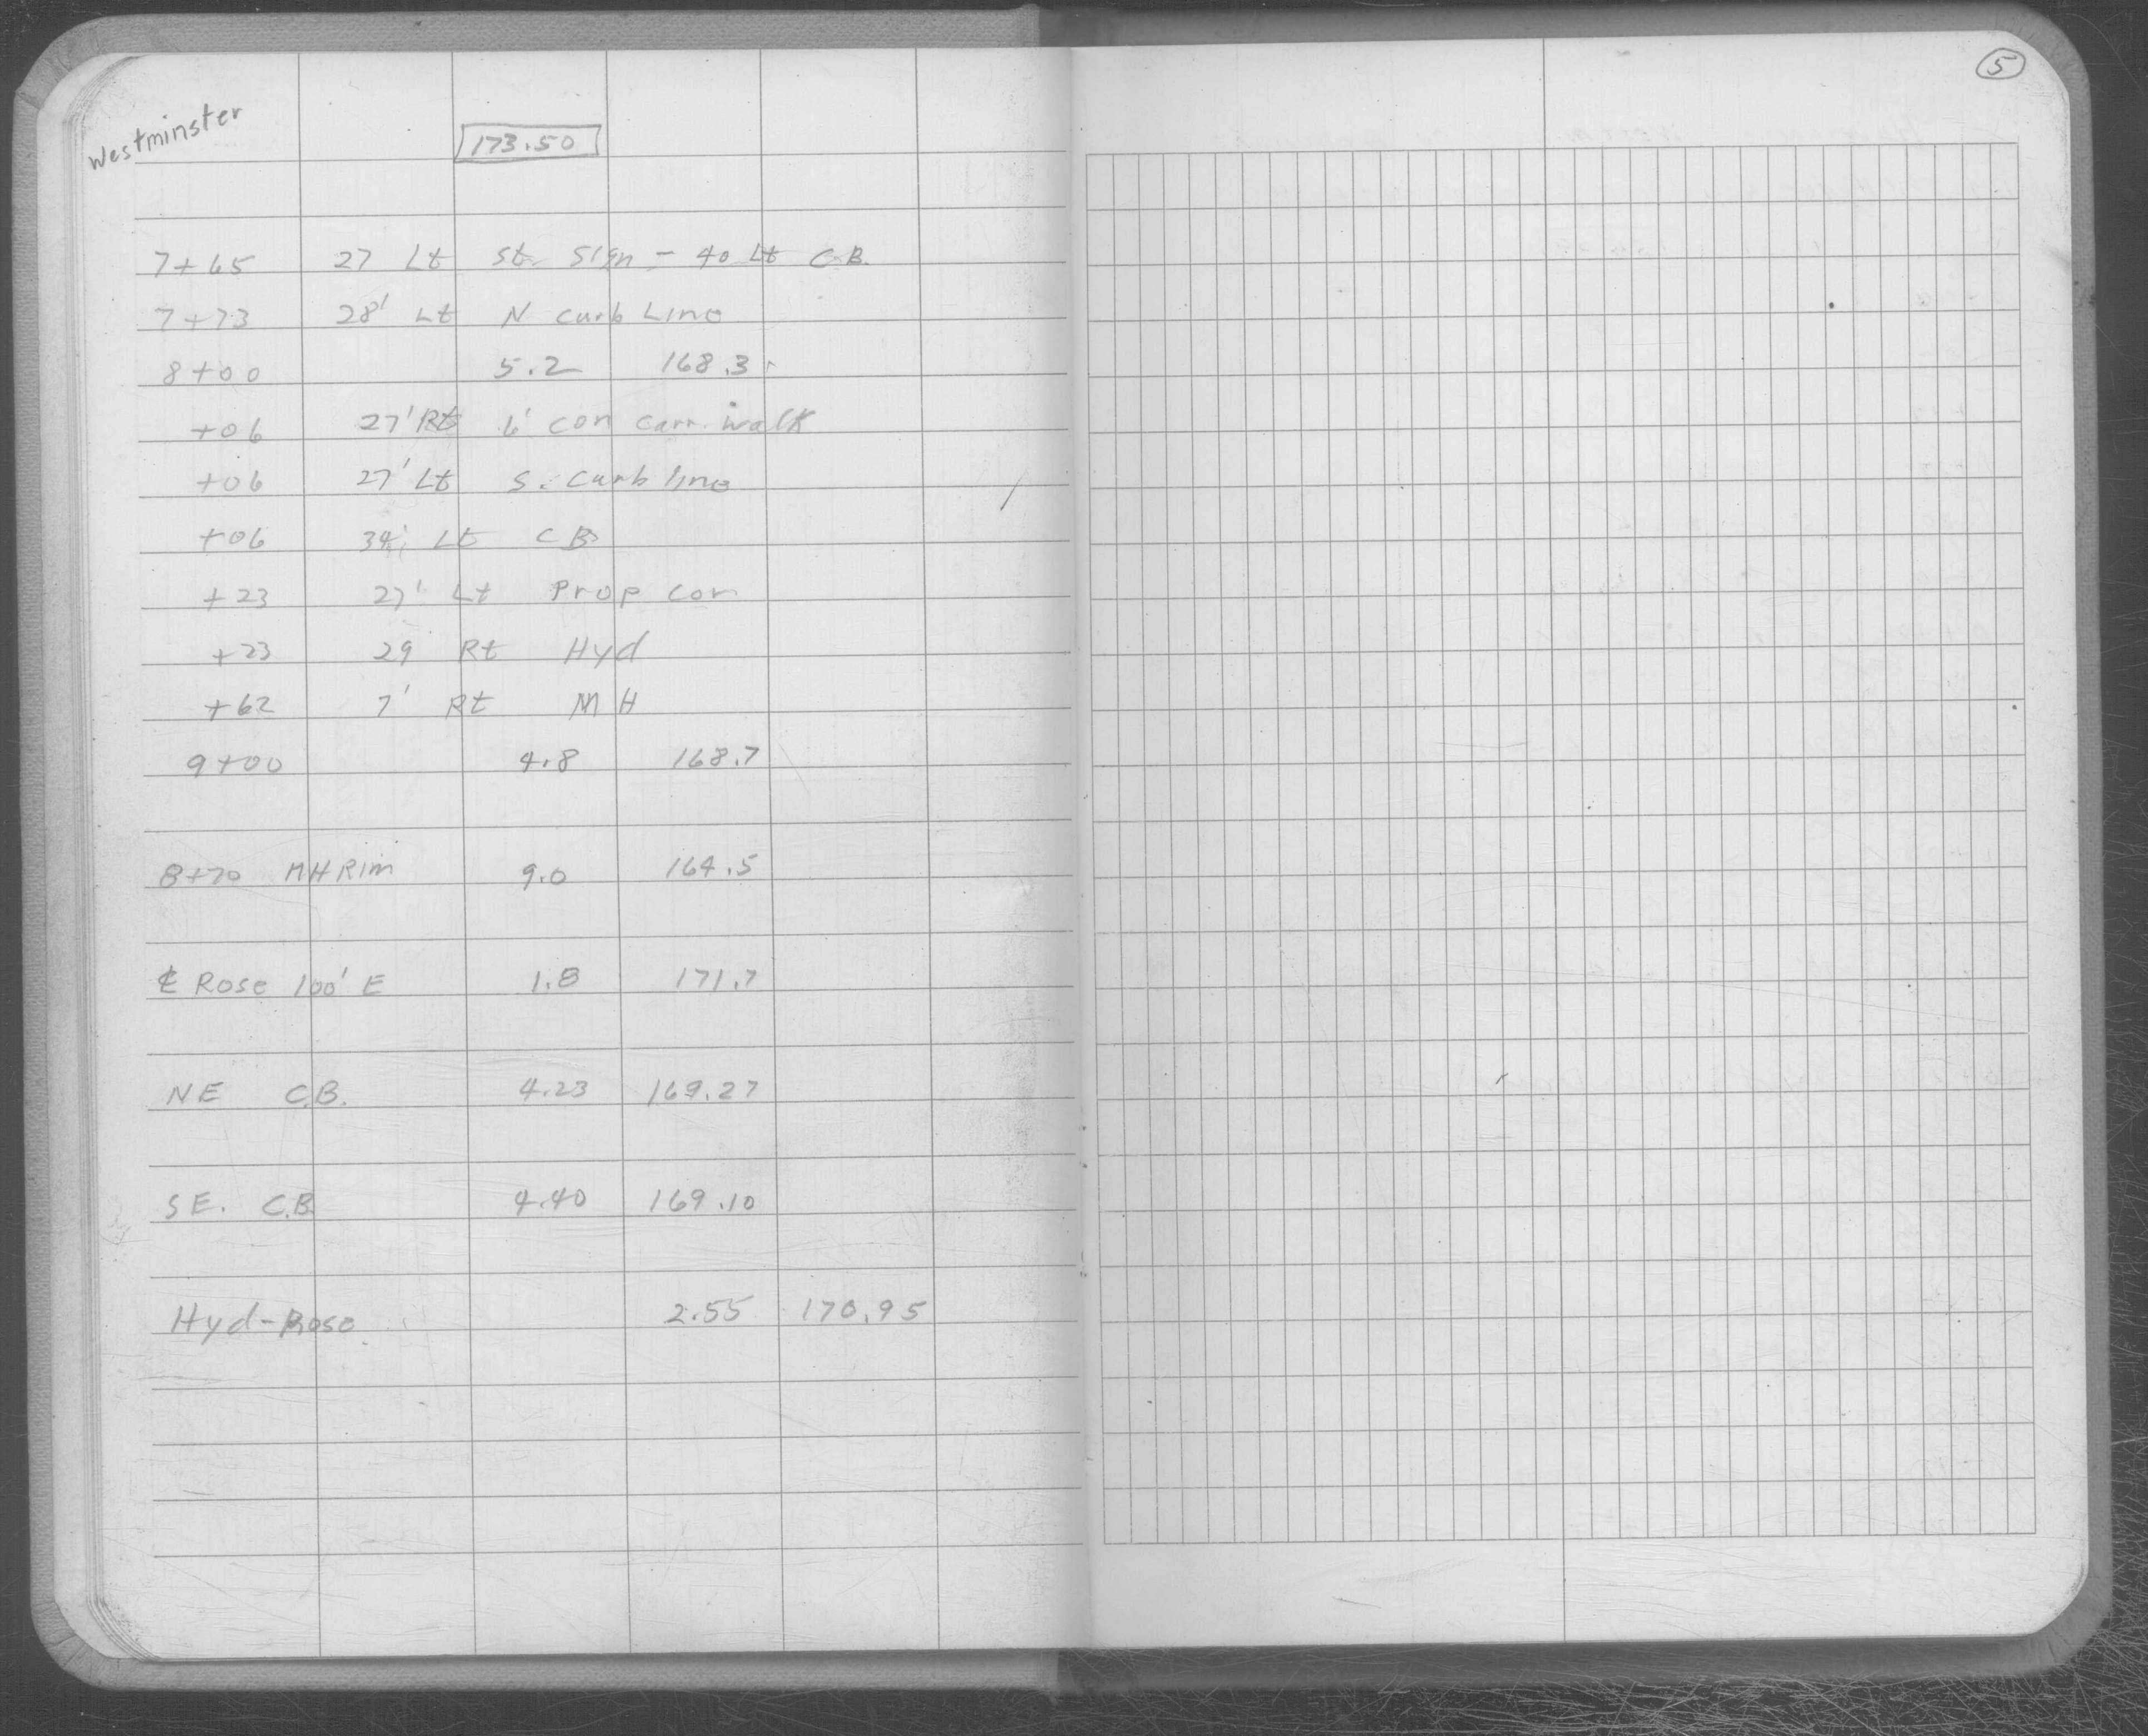 5
Westminster
173.50
7+65 27 Lt St. Sign - 40 Lt C.B.
7+73 28' Lt N curb Line
8+00 5.2 168.3
+06 27' Rt 6' con carr. walk
+06 27' Lt S. curb line
+06 34' Lt CB
+23 27' Lt Prop cor
+23 29 Rt Hyd
+62 7' Rt MH
9+00 4.8 168.7
8+70 MH Rim 9.0 164.5
℄ Rose 100' E 1.8 171.7
NE C.B. 4.23 169.27
SE. C.B. 4.40 169.10
Hyd-Rose 2.55 170.95